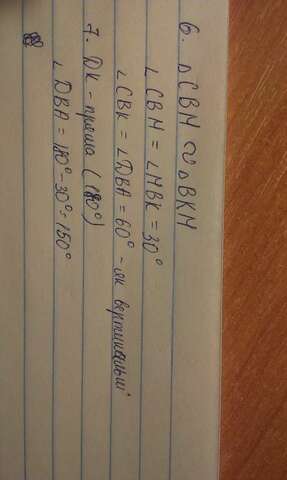 6. △CBM ∾ △BKM
∠CBM = ∠MBK = 30°
∠CBK = ∠DBA = 60° - як вертикальні
7. DK - пряма (180°)
∠DBA = 180° - 30° = 150°